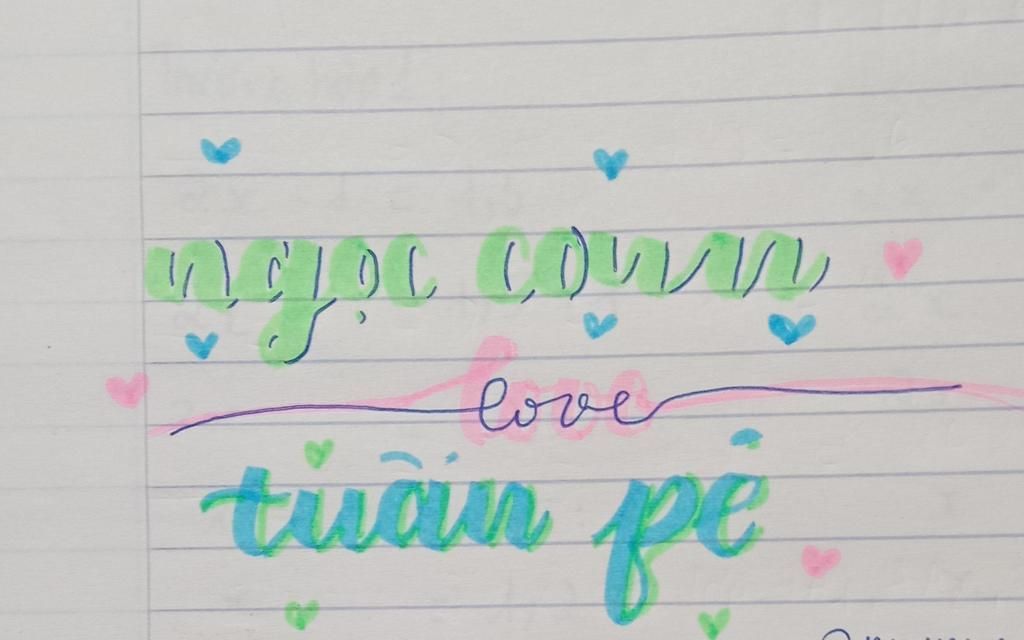 ngọc conn
love
tuấn pé